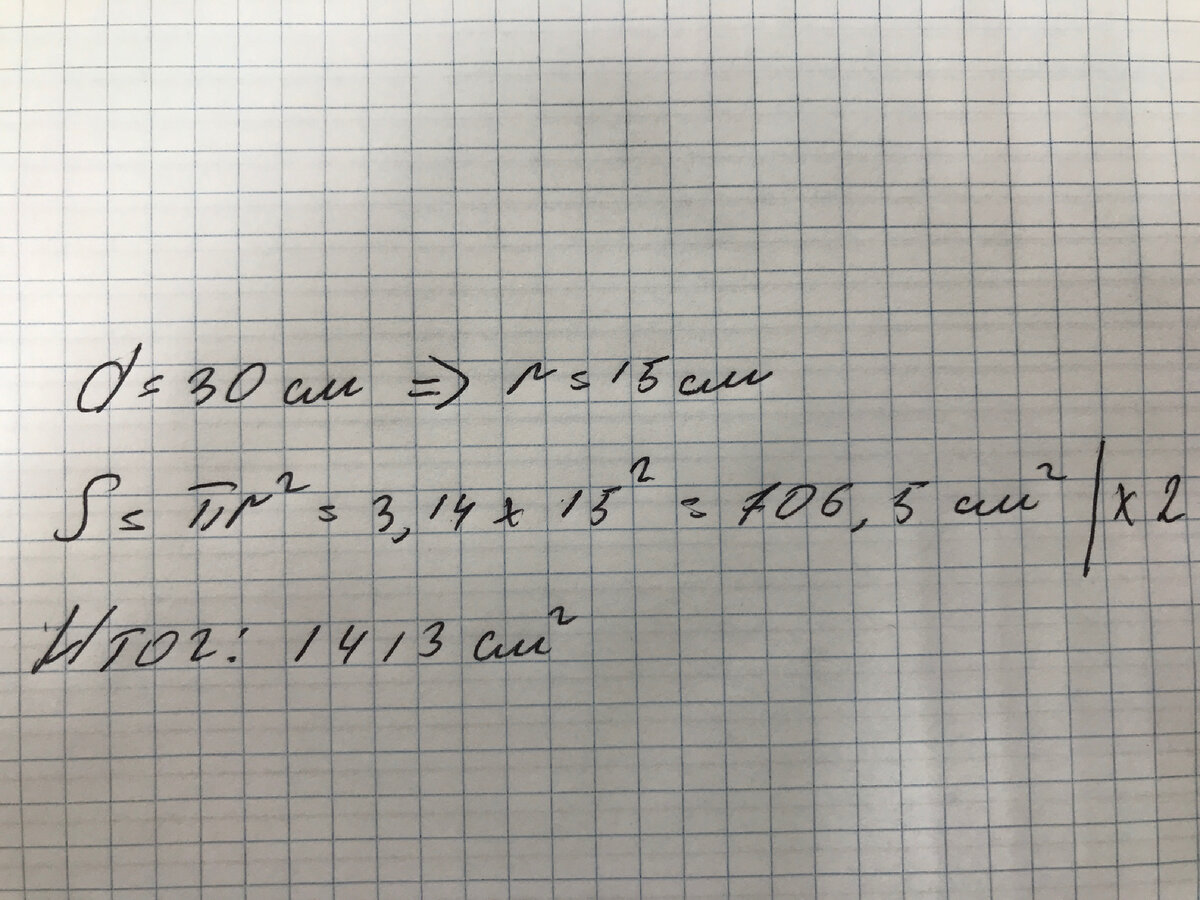 d = 30 см => r = 15 см
S = πr² = 3,14 x 15² = 706,5 см² | x 2
Итог: 1413 см²